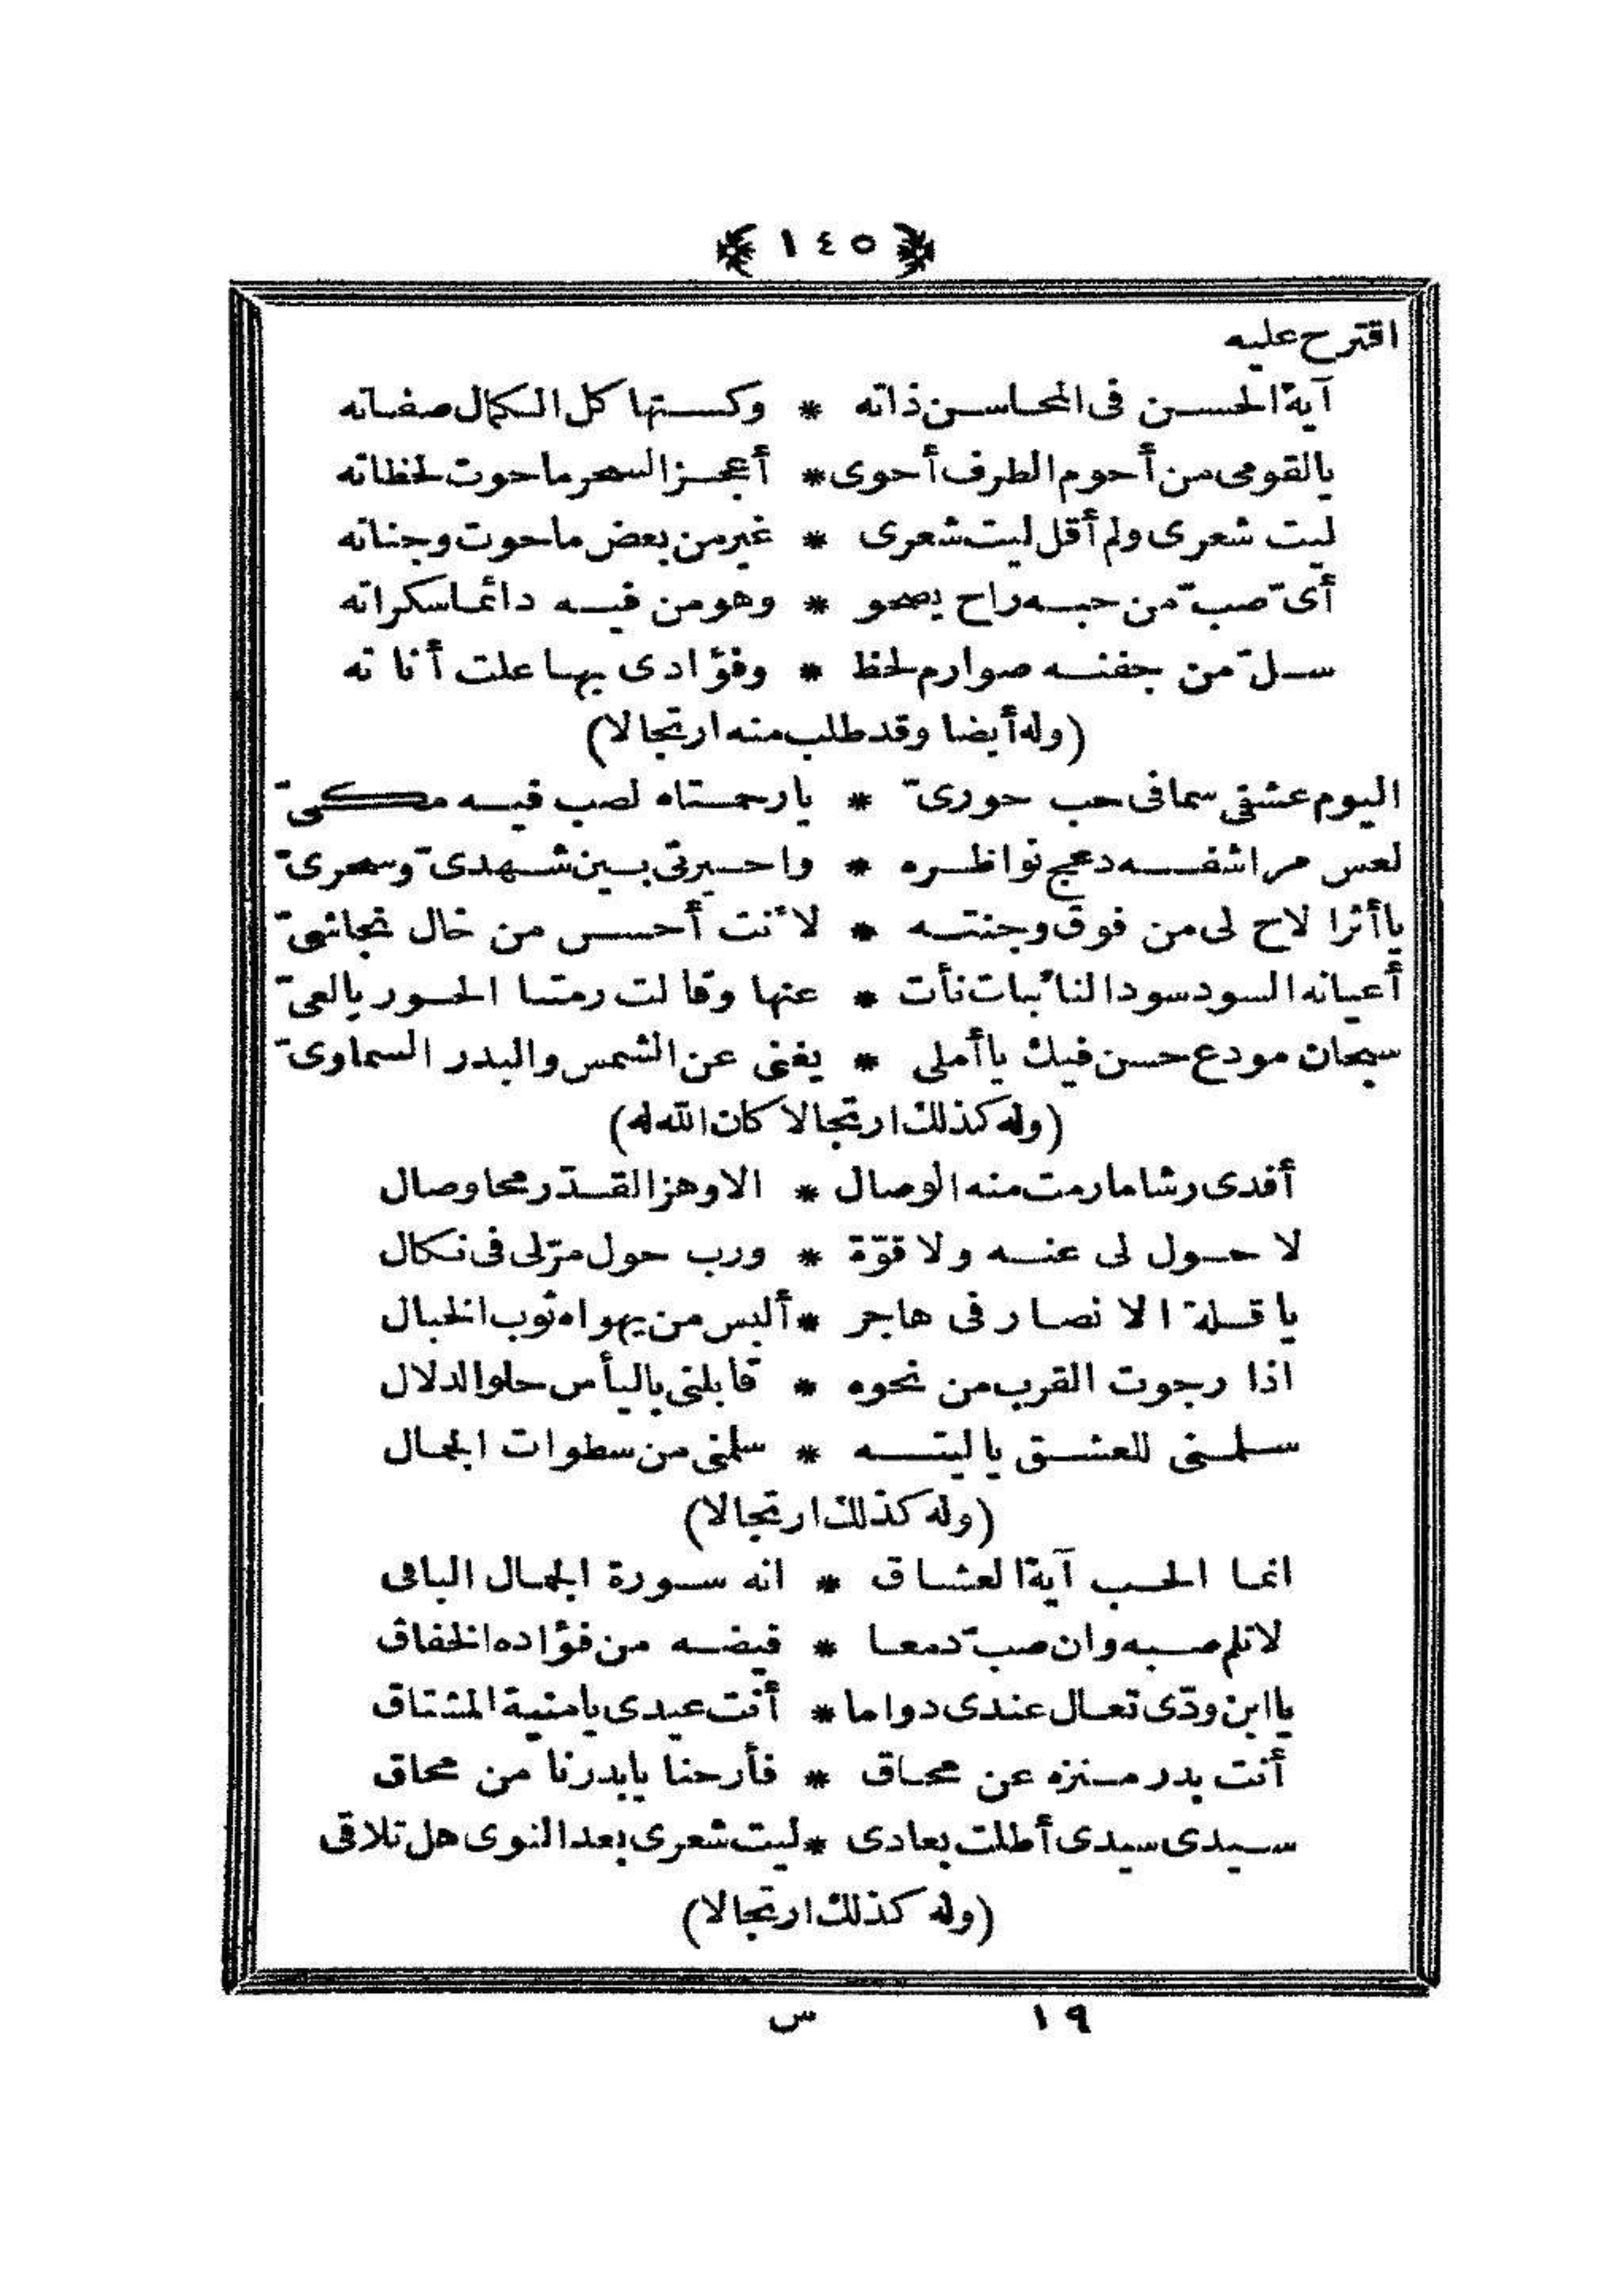 ﴿ ١٤٥ ﴾
اقترح عليه
آية الحسن فى المحاسن ذاته * وكستها كل الكمال صفاته
يالقومى من أحوم الطرف أحوى * أعجز السحر ما حوت لحظاته
ليت شعرى ولم أقل ليت شعرى * غير من بعض ما حوت وجناته
أىّ صبّ من حبه راح يصحو * وهو من فيه دائما سكراته
سلّ من جفنه صوارم لحظ * وفؤادى بها علت أناته
(وله أيضا وقد طلب منه ارتجالا)
اليوم عشقى سما فى حب حورىّ * يارحمتاه لصب فيه مكىّ
لعس مراشفه دعج نواظره * واحيرتى بين شهدىّ وسحرىّ
ياأثرا لاح لى من فوق وجنته * لأنت أحسن من خال نجاشىّ
أعيانه السود سود النائبات نأت * عنها وقالت رمتنا الحور بالعىّ
سبحان مودع حسن فيك ياأملى * يغنى عن الشمس والبدر السماوىّ
(وله كذلك ارتجالا كان الله له)
أفدى رشا مارمت منه الوصال * الا وهز القدّ رمحا وصال
لا حول لى عنه ولا قوّة * ورب حول مرّلى فى نكال
يا قلة الانصار فى هاجر * ألبس من يهواه ثوب الخبال
اذا رجوت القرب من نحوه * قابلنى باليأس حلو الدلال
سلمنى للعشق ياليته * سلمنى من سطوات الجمال
(وله كذلك ارتجالا)
انما الحب آية العشاق * انه سورة الجمال الباقى
لاتلم صبه وان صبّ دمعا * فيضه من فؤاده الخفاق
ياابن ودّى تعال عندى دواما * أنت عيدى يامنية المشتاق
أنت بدر منزه عن محاق * فأرحنا يابدرنا من محاق
سيدى سيدى أطلت بعادى * ليت شعرى بعد النوى هل تلاقى
(وله كذلك ارتجالا)
١٩ س